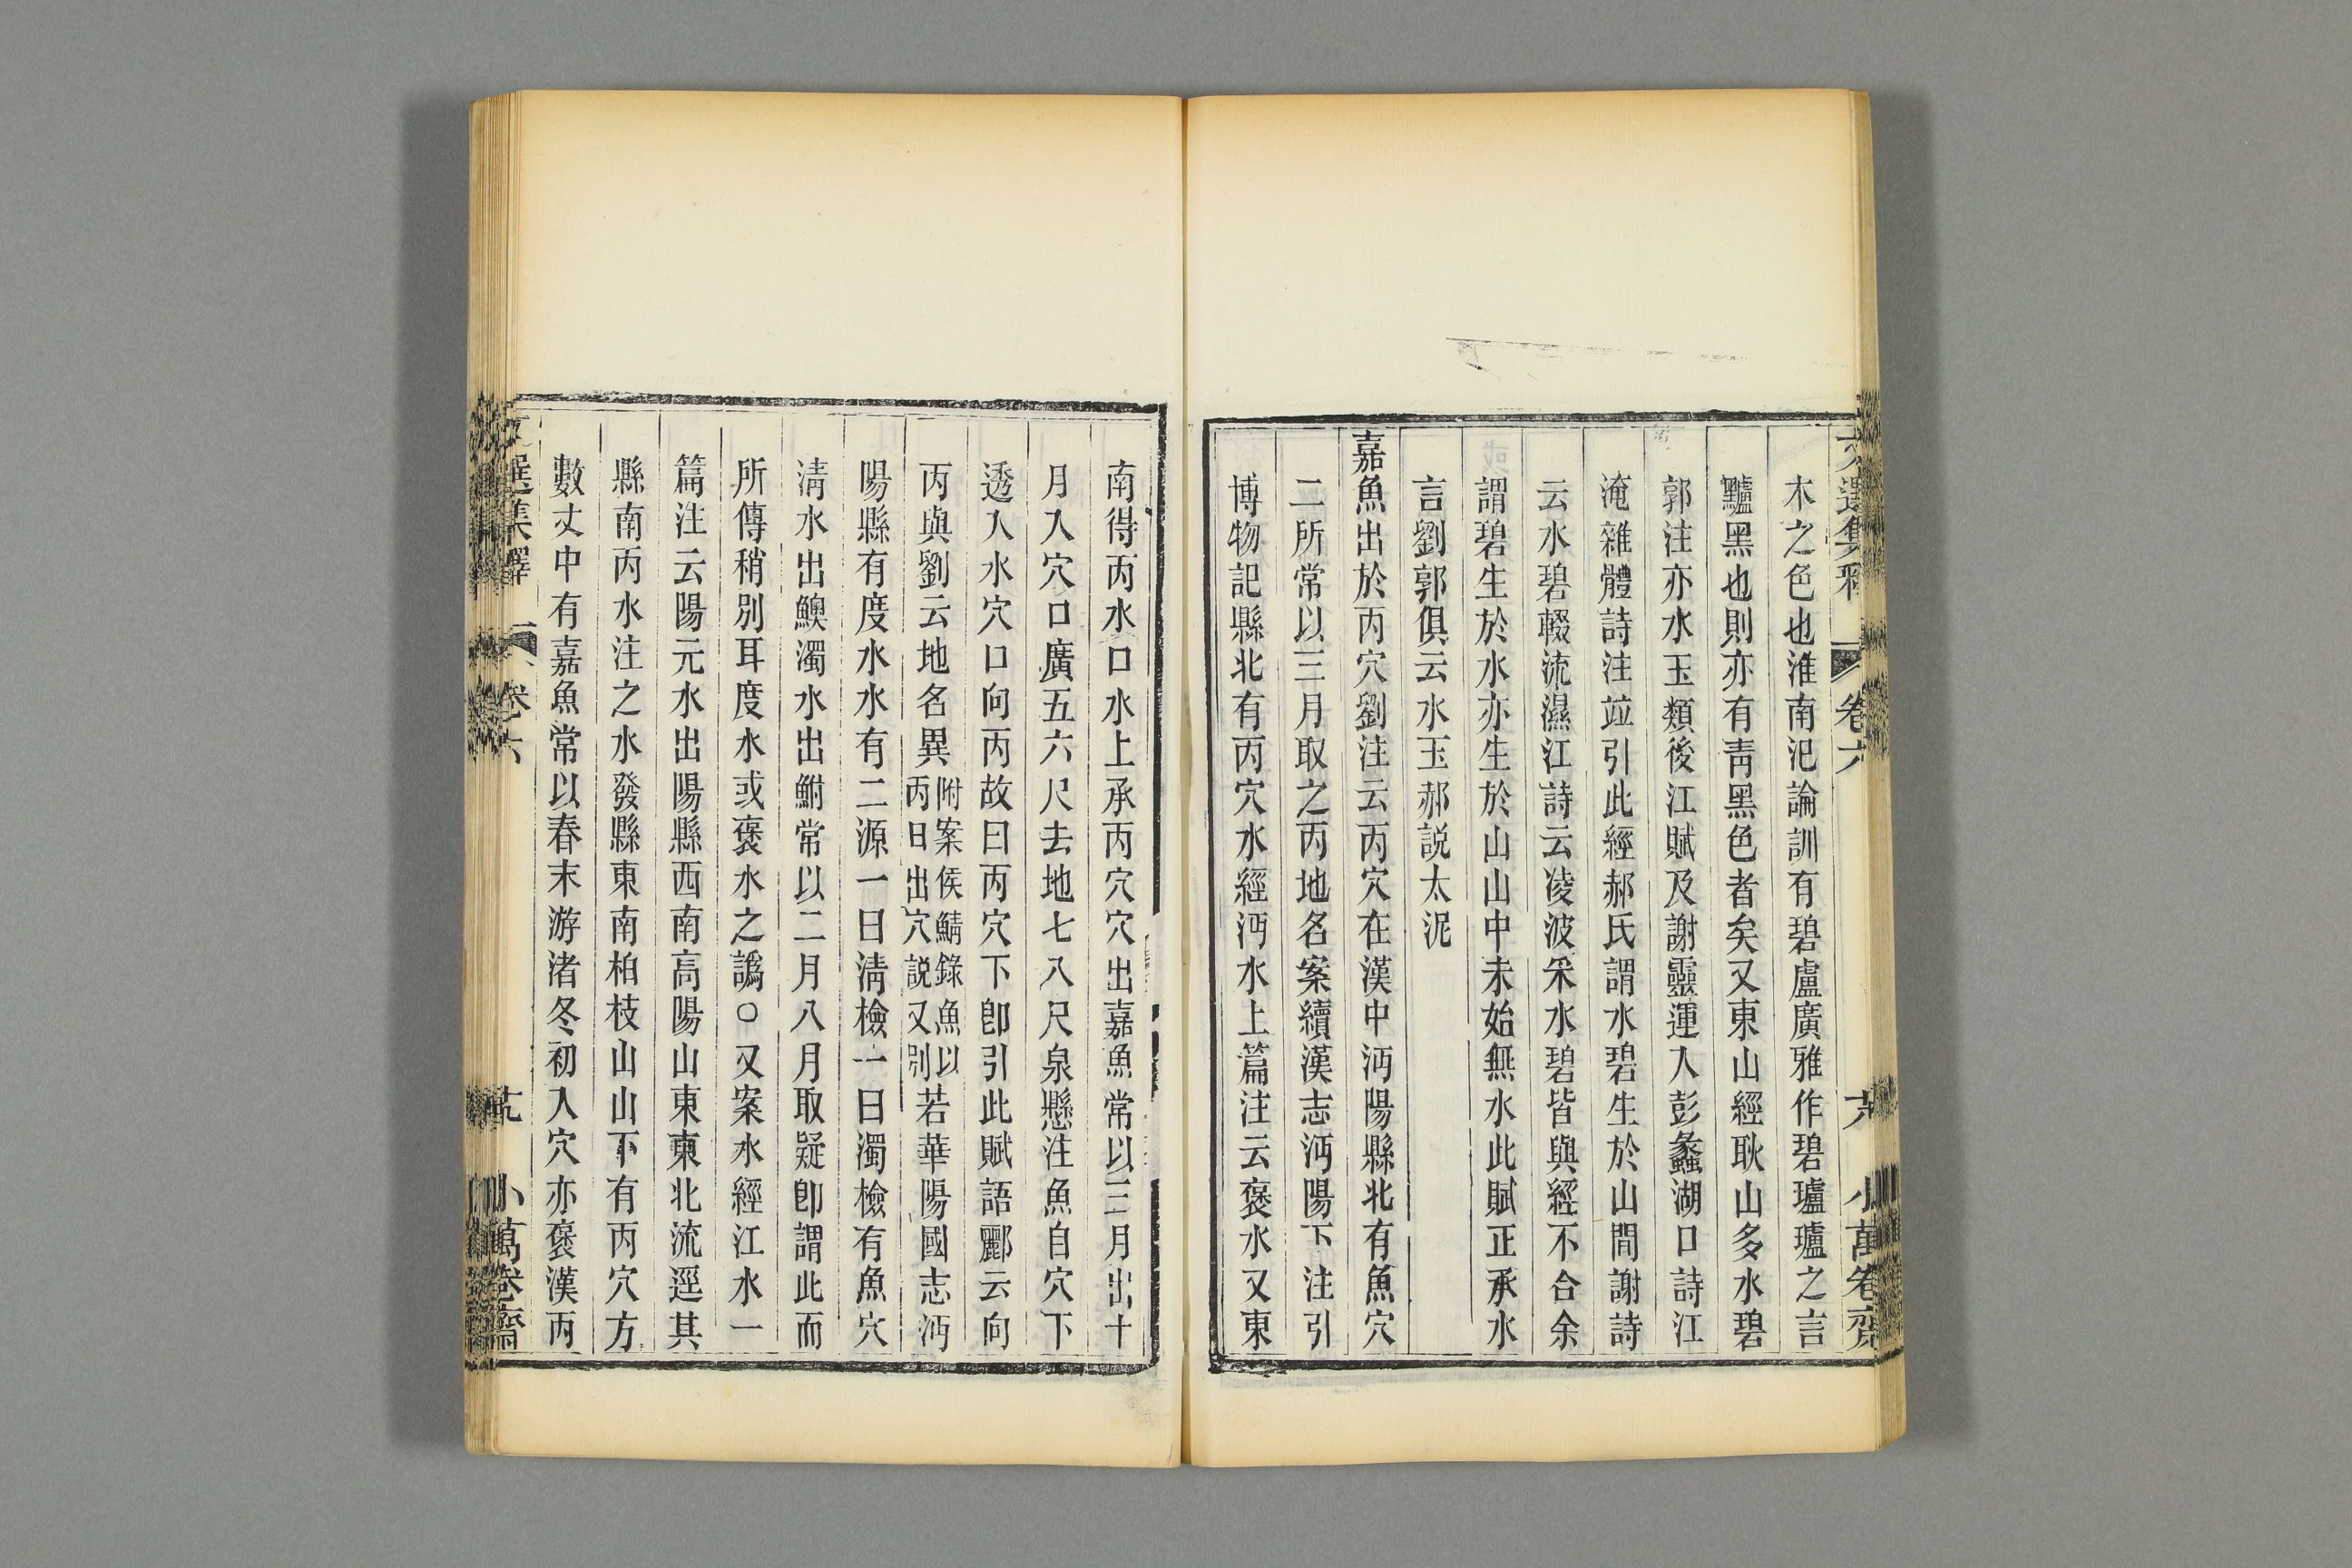 文選集釋 卷六 小萬卷齋
木之色也淮南氾論訓有碧盧廣雅作碧瓐瓐之言
黸黑也則亦有青黑色者矣又東山經耿山多水碧
郭注亦水玉類後江賦及謝靈運入彭蠡湖口詩江
淹雜體詩注竝引此經郝氏謂水碧生於山間謝詩
云水碧輟流濕江詩云凌波采水碧皆與經不合余
謂碧生於水亦生於山山中未始無水此賦正承水
言劉郭俱云水玉郝說太泥
嘉魚出於丙穴劉注云丙穴在漢中沔陽縣北有魚穴
二所常以三月取之丙地名案續漢志沔陽下注引
博物記縣北有丙穴水經沔水上篇注云褒水又東
南得丙水口水上承丙穴穴出嘉魚常以三月出十
月入穴口廣五六尺去地七八尺泉懸注魚自穴下
透入水穴口向丙故曰丙穴下卽引此賦語酈云向
丙與劉云地名異附案侯鯖錄魚以丙日出穴說又別若華陽國志沔
陽縣有度水水有二源一曰清檢一曰濁檢有魚穴
清水出鰅濁水出鮒常以二月八月取疑卽謂此而
所傳稍別耳度水或褒水之譌○又案水經江水一
篇注云陽元水出陽縣西南高陽山東東北流逕其
縣南丙水注之水發縣東南柏枝山山下有丙穴方
數丈中有嘉魚常以春末游渚冬初入穴亦褒漢丙
文選集釋 卷六 小萬卷齋